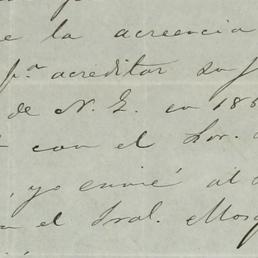 e la acreencia
pª acreditar su f
de N. G. en 186
con el Sor.
, yo envié al
n el Gral. Mosq